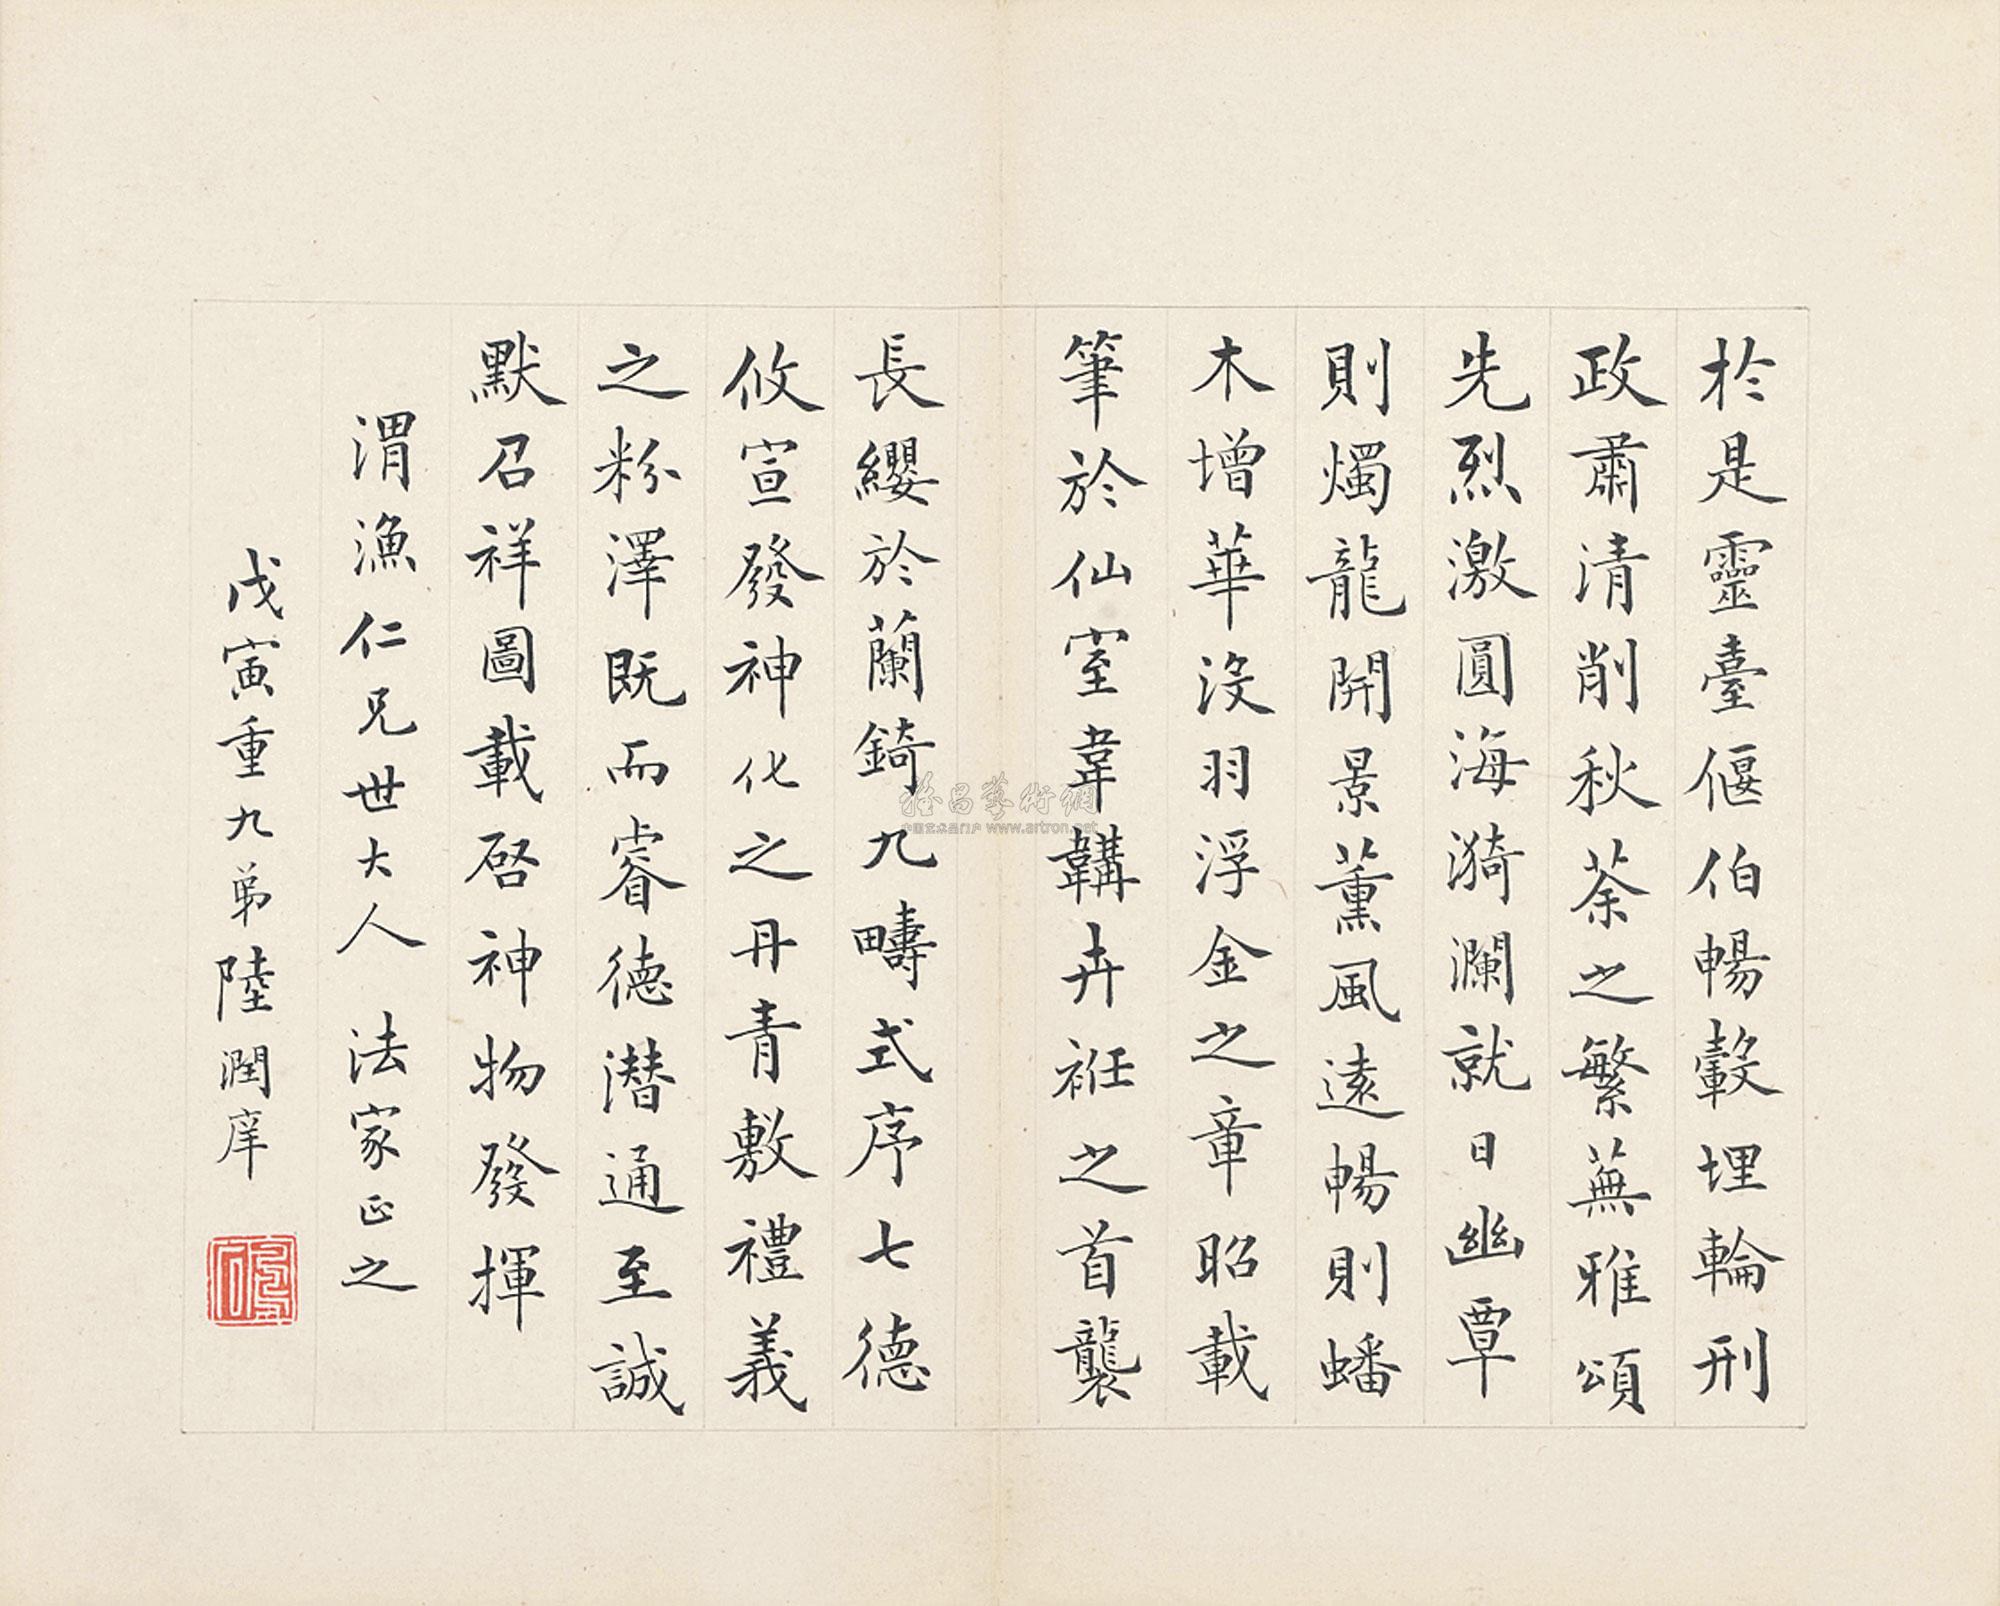 於是靈臺偃伯暢轂埋輪刑
政肅清削秋荼之繁蕪雅頌
先烈激圓海漪瀾就日幽覃
則燭龍開景薰風遠暢則蟠
木增華沒羽浮金之章昭載
筆於仙室韋韝卉衽之首襲
長纓於蘭錡九疇式序七德
攸宣發神化之丹青敷禮義
之粉澤既而睿德潛通至誠
默召祥圖載啓神物發揮
渭漁仁兄世大人 法家正之
戊寅重九弟陸潤庠
雅昌藝術網
中国艺术品门户 www.artron.net